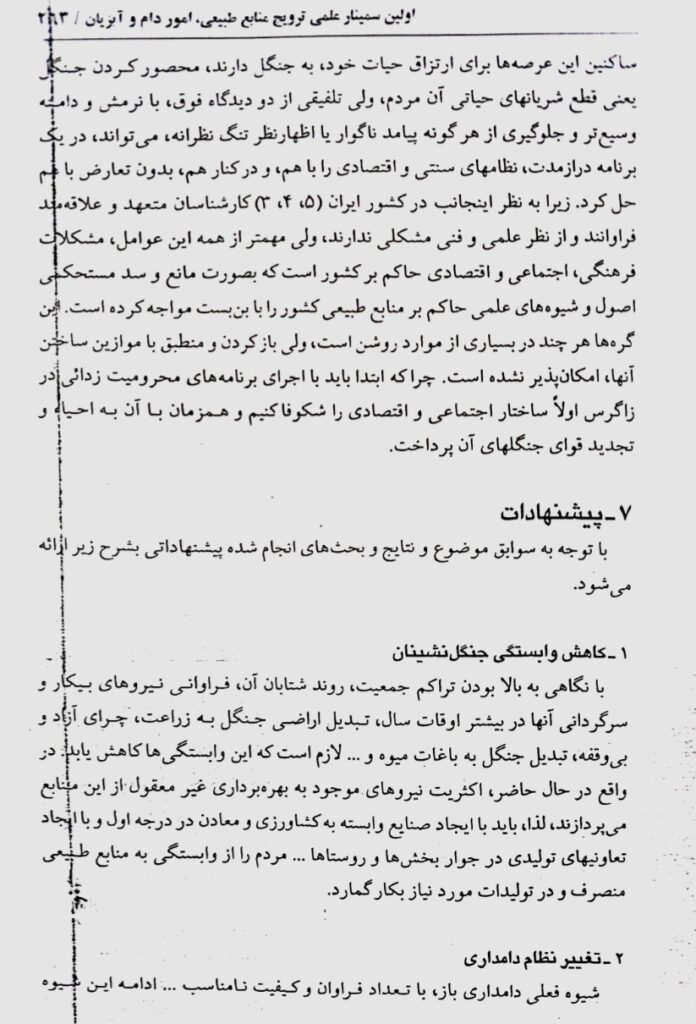 اولین سمینار علمی ترویج منابع طبیعی، امور دام و آبزیان / ۲۶۳
ساکنین این عرصه‌ها برای ارتزاق حیات خود، به جنگل دارند، محصور کردن جنگل
یعنی قطع شریانهای حیاتی آن مردم، ولی تلفیقی از دو دیدگاه فوق، با نرمش و دامنه
وسیع‌تر و جلوگیری از هر گونه پیامد ناگوار یا اظهارنظر تنگ نظرانه، می‌تواند، در یک
برنامه درازمدت، نظامهای سنتی و اقتصادی را با هم، و در کنار هم، بدون تعارض با هم
حل کرد. زیرا به نظر اینجانب در کشور ایران (۵، ۴، ۳) کارشناسان متعهد و علاقه‌مند
فراوانند و از نظر علمی و فنی مشکلی ندارند، ولی مهمتر از همه این عوامل، مشکلات
فرهنگی، اجتماعی و اقتصادی حاکم بر کشور است که بصورت مانع و سد مستحکمی
اصول و شیوه‌های علمی حاکم بر منابع طبیعی کشور را با بن‌بست مواجه کرده است. این
گره‌ها هر چند در بسیاری از موارد روشن است، ولی باز کردن و منطبق با موازین ساختن
آنها، امکان‌پذیر نشده است. چرا که ابتدا باید با اجرای برنامه‌های محرومیت زدائی در
زاگرس اولاً ساختار اجتماعی و اقتصادی را شکوفا کنیم و همزمان با آن به احیاء و
تجدید قوای جنگلهای آن پرداخت.
۷ ـ پیشنهادات
با توجه به سوابق موضوع و نتایج و بحث‌های انجام شده پیشنهاداتی بشرح زیر ارائه
می‌شود.
۱ ـ کاهش وابستگی جنگل‌نشینان
با نگاهی به بالا بودن تراکم جمعیت، روند شتابان آن، فراوانی نیروهای بیکار و
سرگردانی آنها در بیشتر اوقات سال، تبدیل اراضی جنگل به زراعت، چرای آزاد و
بی‌وقفه، تبدیل جنگل به باغات میوه و ... لازم است که این وابستگی‌ها کاهش یابد. در
واقع در حال حاضر، اکثریت نیروهای موجود به بهره‌برداری غیر معقول از این منابع
می‌پردازند، لذا، باید با ایجاد صنایع وابسته به کشاورزی و معادن در درجه اول و با ایجاد
تعاونیهای تولیدی در جوار بخش‌ها و روستاها ... مردم را از وابستگی به منابع طبیعی
منصرف و در تولیدات مورد نیاز بکار گمارد.
۲ ـ تغییر نظام دامداری
شیوه فعلی دامداری باز، با تعداد فراوان و کیفیت نامناسب ... ادامه این شیوه